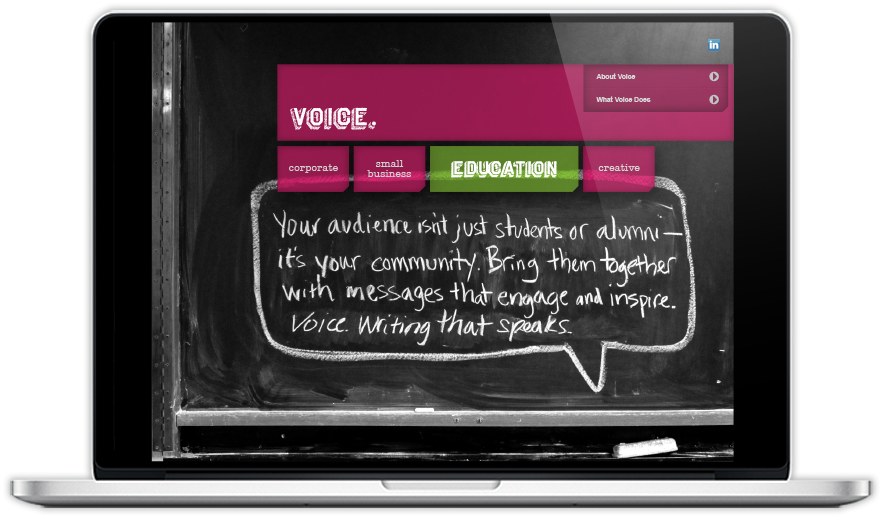 in
About Voice
What Voice Does
VOICE.
corporate
small
business
EDUCATION
creative
Your audience isn't just students or alumni—
it's your community. Bring them together
with messages that engage and inspire.
Voice. Writing that speaks.